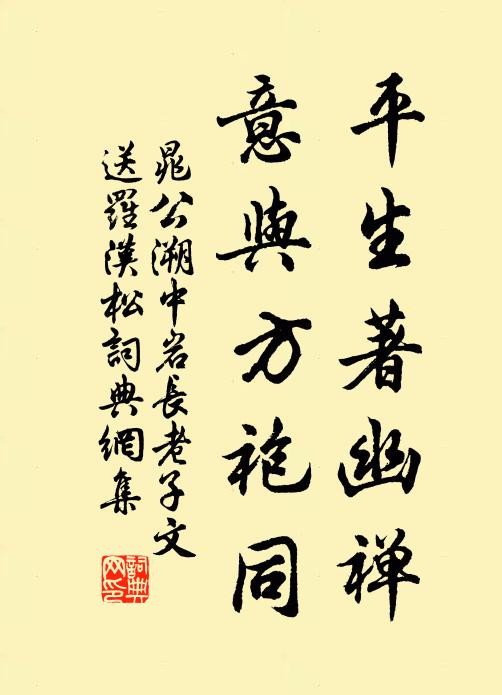 平生著幽禅
意與方袍同
晁公溯中岩長老子文
送羅漢松詞典網集
詞典网印